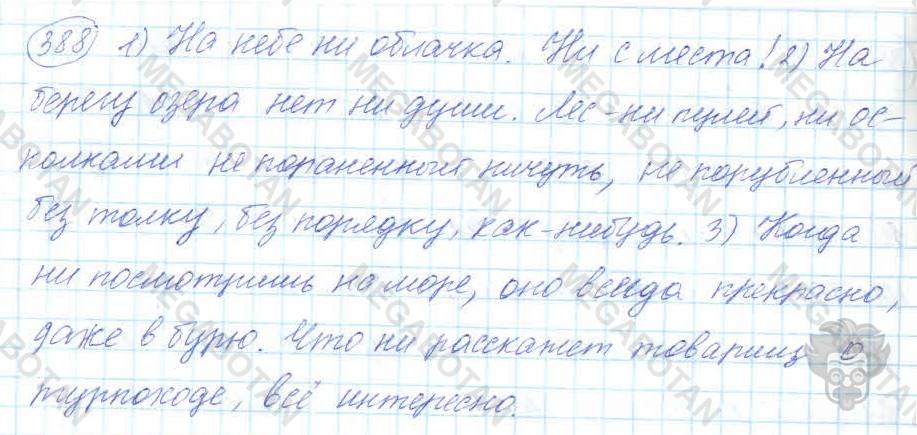 388 1) На небе ни облачка. Ни с места! 2) На
берегу озера нет ни души. Лес - ни пулей, ни ос-
колками не пораненный ничуть, не порубленный
без толку, без порядку, как-нибудь. 3) Когда
ни посмотришь на море, оно всегда прекрасно,
даже в бурю. Что ни расскажет товарищ о
турпоходе, всё интересно.
MEGABOTAN